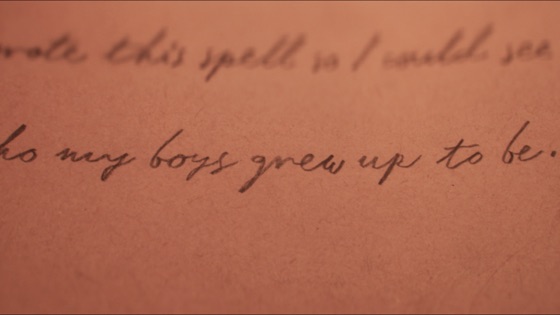 rote this spell so I could see
ho my boys grew up to be.